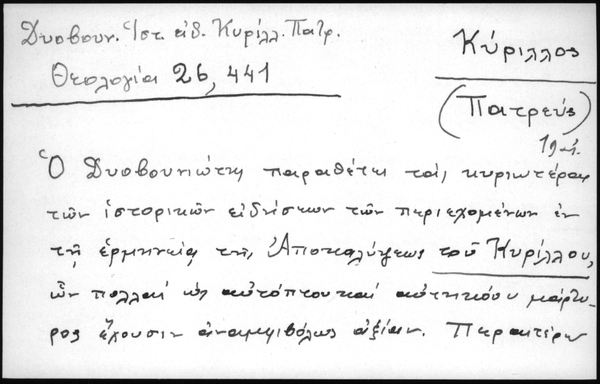 Δυοβουν. Ἱστ. εἰδ. Κυρίλλ. Πατρ.
Θεολογία 26, 441
Κύριλλος
(Πατρεύς)
Ὁ Δυοβουνιώτης παραθέτει τάς κυριωτέρας
τῶν ἱστορικῶν εἰδήσεων τῶν περιεχομένων ἐν
τῇ ἑρμηνείᾳ τῆς Ἀποκαλύψεως τοῦ Κυρίλλου,
ὧν πολλαί ὡς αὐτόπτου καί αὐτηκόου μάρτυ-
ρος ἔχουσιν ἀναμφιβόλως ἀξίαν. Παρατέρω